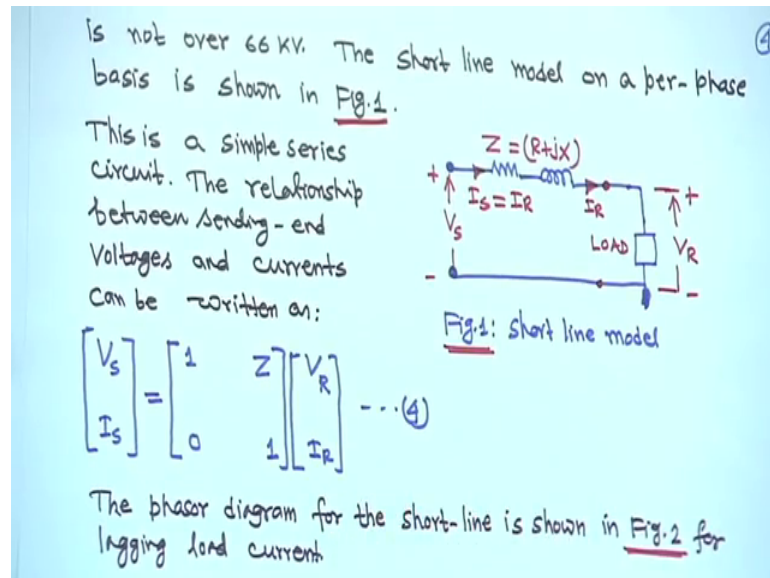 is not over 66 KV. The short line model on a per-phase
basis is shown in Fig.1.
This is a simple series
circuit. The relationship
between sending-end
Voltages and currents
can be written as:
Z = (R+jX)
+
IS = IR
IR
+
VS
LOAD
VR
-
-
Fig.1: short line model
[VS IS] = [1 Z 0 1] [VR IR] ---(4)
The phasor diagram for the short-line is shown in Fig.2 for
lagging load current